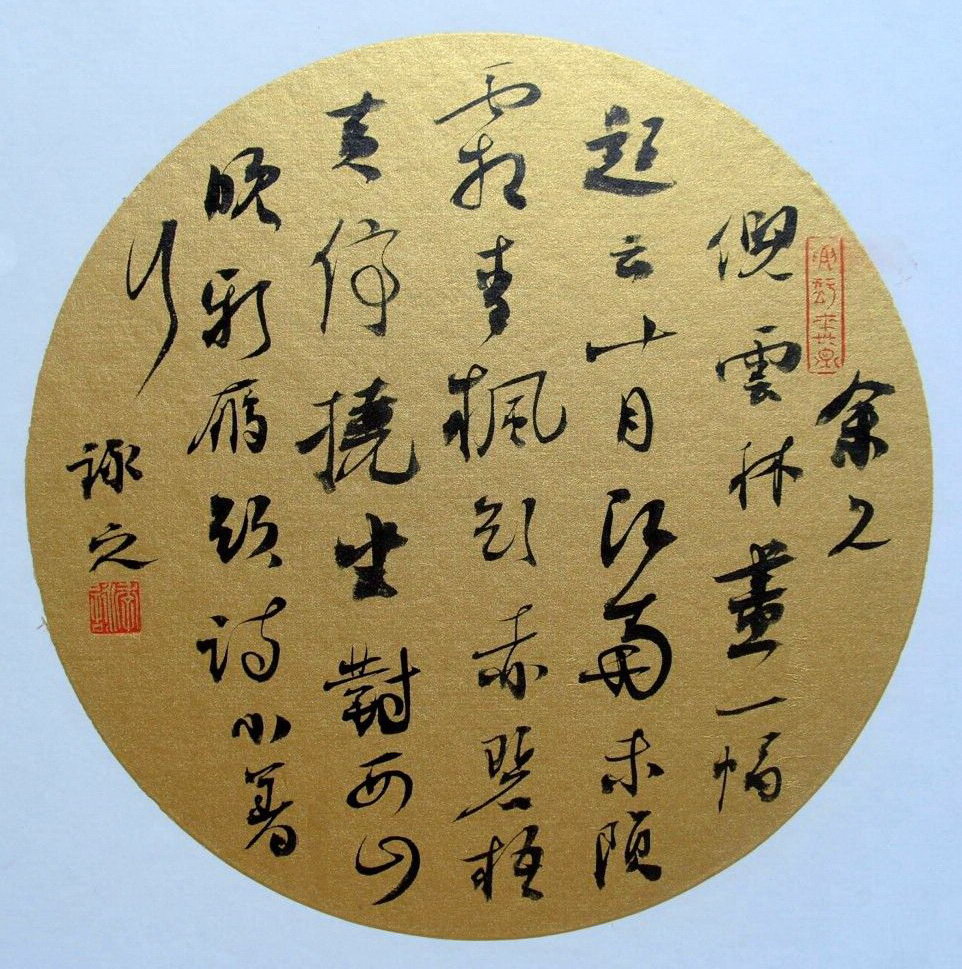 余
倪雲林畫一幅
題云十月江南未隕
霜青楓欲赤碧梧
黃停橈坐對西山
晚新雁題詩小著
行
之